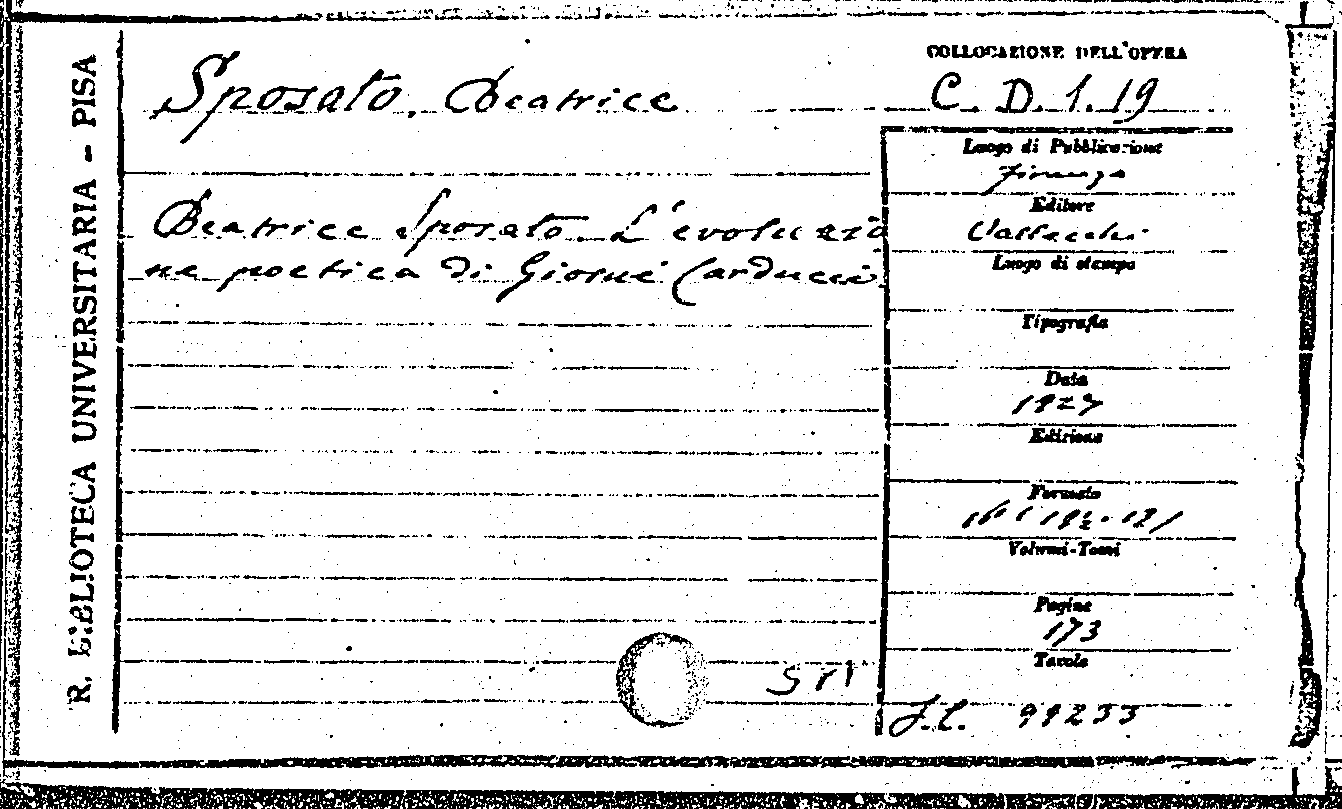 R. BIBLIOTECA UNIVERSITARIA - PISA
Sposato, Beatrice
Beatrice Sposato. L'evoluzio
ne poetica di Giosuè Carducci
COLLOCAZIONE DELL'OPERA
C. D. 1. 19
Luogo di Pubblicazione
Firenze
Editore
Vallecchi
Luogo di stampa
Tipografia
Data
1927
Edizione
Formato
Volumi-Tomi
Pagine
173
Tavole
99233